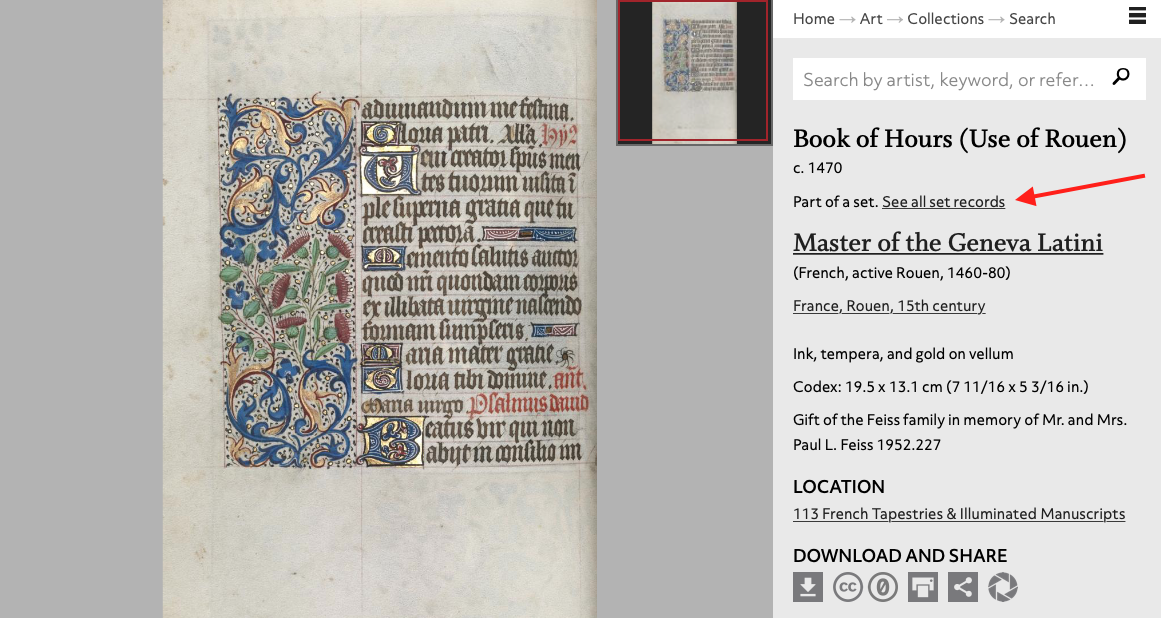 adiuuandum me festina.
Gloria patri. Alla
Veni creator spūs men
tes tuorum uisita ī
ple superna gratia que tu
creasti pectora.
Memento salutis auctor
quod nrī quondam corporis
ex illibata uirgine nascendo
formam sumpseris.
Maria mater gratie
Gloria tibi domine. añt.
Maria uirgo Psalmus dauid
Beatus vir qui non
abijt in consilio im
Home → Art → Collections → Search
Search by artist, keyword, or refer...
Book of Hours (Use of Rouen)
c. 1470
Part of a set. See all set records
Master of the Geneva Latini
(French, active Rouen, 1460-80)
France, Rouen, 15th century
Ink, tempera, and gold on vellum
Codex: 19.5 x 13.1 cm (7 11/16 x 5 3/16 in.)
Gift of the Feiss family in memory of Mr. and Mrs.
Paul L. Feiss 1952.227
LOCATION
113 French Tapestries & Illuminated Manuscripts
DOWNLOAD AND SHARE
cc 0